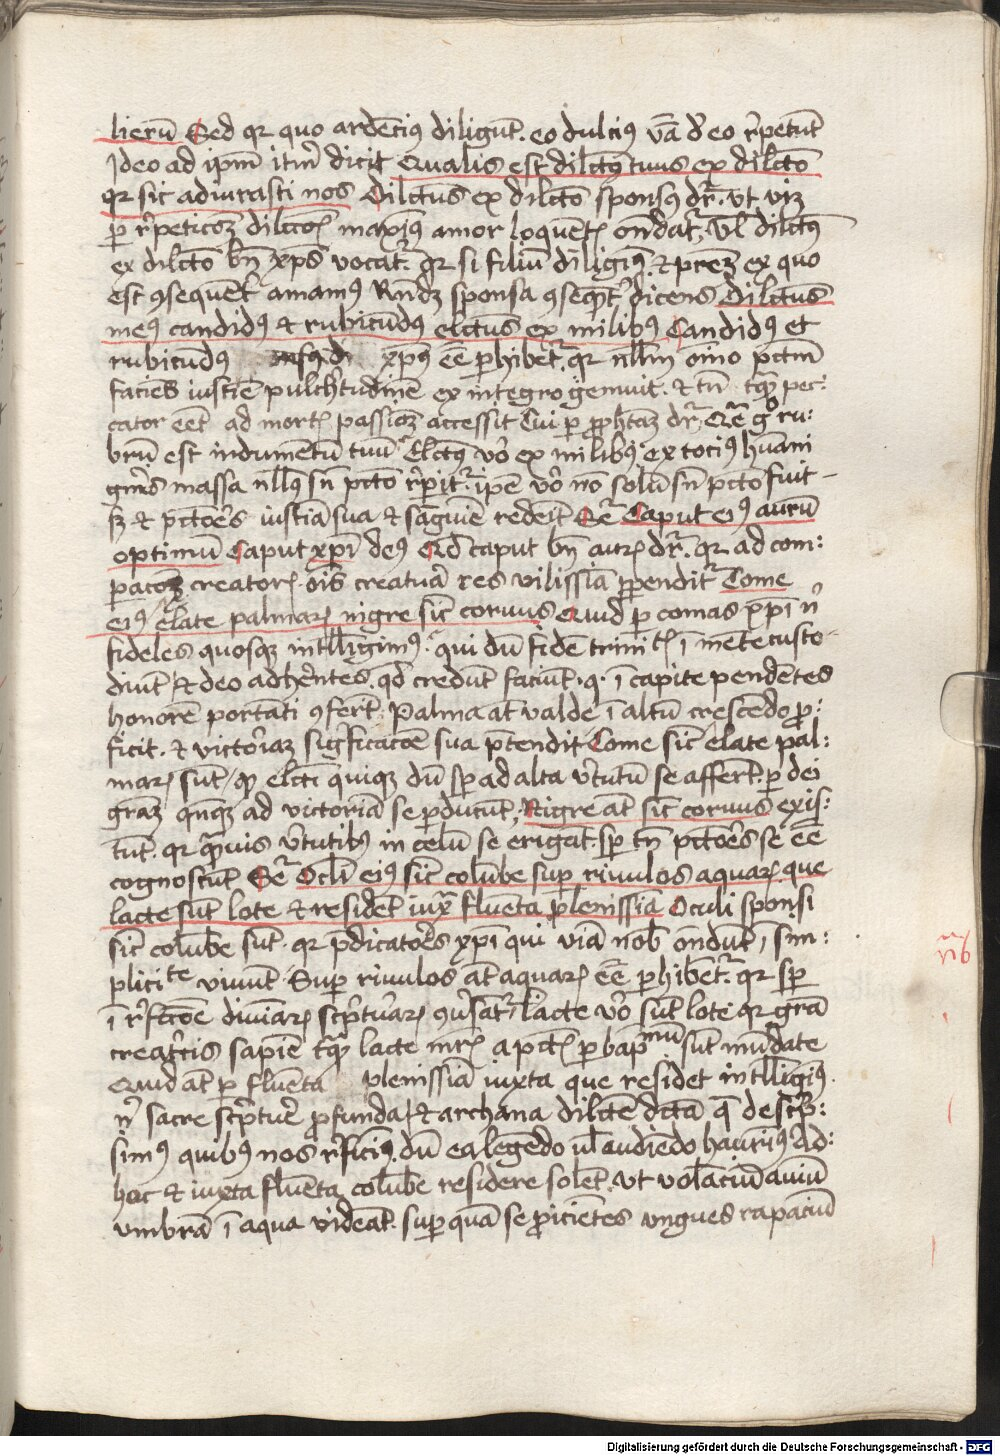 lierū Sed qr quo ardēciꝰ diligūt. eo dulciꝰ v̄ba d' eo r'petūt
Ideo ad ipm̄ itm̄ dicit Qualis est dilc̄tꝰ tuus ex dilc̄to
qr sic adiurasti nos Dilc̄tus ex dilc̄to sponsꝰ dr̄. vt viꝫ
ꝑ r'peticōꝫ dilcc̄oīs maxiꝰ amor loquēt͛ ōndat͛ vl̄ dilc̄tꝰ
ex dilc̄to bn̄ xp̄s vocat͛. qr si filiū diligimꝰ ⁊ prēm ex quo
est ꝯsequēt͛ amamꝰ Rn̄dꝫ sponsa ꝯseqn̄t͛ dicens Dilc̄tus
meꝰ candidꝰ ⁊ rubicūdꝰ elc̄tus ex milibꝰ Candidꝰ et
rubicūdꝰ xp̄c ee ꝑhibet͛ qr nll̄m oīno pctm̄
faciēs iusticie pulch'tudinē ex integro genuit. ⁊ tn̄ tqꝫ pec:
cator eēt ad mort͛ passiōꝫ accessit Cui ꝑ ꝓphetaꝫ dr̄ Qrē gͦ ru:
brū est indumentū tuū Elc̄tꝰ vo ex milibꝰ ex tociꝰ hūani
gn̄is massa nllꝰ sn̄ pctō r'perit͛. ipse vo nō solū sn̄ pctō fuit
sꝫ ⁊ pctōres iusticia sua ⁊ sanguīe redemit Seqr̄ Caput eiꝰ aurū
optimū Caput xp̄i deꝰ Qd̄ caput bn̄ aurꝫ dr̄. qr ad com:
ꝑacōꝫ creatorꝫ ois creatura res vilissima ꝑpendit͛ Come
eiꝰ elate palmarꝫ nigre sic̄ coruus Quid ꝑ comas xp̄i n'
fideles quosqꝫ intelligimꝰ. qui dū fidē trinit͛ ī mēte custo-
diunt ⁊ deo adhērtes. qd̄ credūt faciūt. q. ī capite pendētes
honorē portati ꝯfert͛. Palma at̄ valde ī altū crescēdo ꝓ:
ficit. ⁊ victoriaꝫ significacōe sua ptendit Come sic̄ elate pal:
marꝫ sunt / qꝫ elc̄ti quiqꝫ dū sp̄ ad alta v'tutū se afferūt. ꝑ dei
graꝫ qn̄qꝫ ad victoriā se ꝑducūt, Nigre at̄ sic̄ coruus exis:
tūt. qr qꝫuis v'tutibꝰ in celū se erigāt. sp̄ tn̄ pctōres se eē
cognoscūt Seqr̄ Oculi eiꝰ sic̄ columbe sup riuulos aquarꝫ que
lacte sunt lote ⁊ residēt iuxͣ fluenta plenissia Oculi sponsi
sic̄ colūbe sūt. qr p̄dicatores xp̄i qui viā nobis ōndūt, sim:
plicite viuūt Sup riuulos at̄ aquarꝫ eē ꝑhibēt͛. qr sp̄
ī r'fecc̄oe diuinarꝫ scripturarꝫ ꝯuersāt͛, lacte vo sūt lote qr gratia
creatricis sapie tqꝫ lacte mr̄is a pctīs ꝑ baptismū sūt mūdate
Quid at̄ ꝑ fluenta plenissia iuxta que residēt intelligimꝰ
n' sacre scripture ꝓfunda / ⁊ archana dilcte dcta q̄ descripsi:
simꝰ quibꝰ nos r'ficimꝰ. dū ea legēdo vl̄ audiēdo haurimꝰ Ad:
huc ⁊ iuxta fluēta colūbe residere solēt. vt volaciū auiū
vmbrā ī aqua videāt. sup quā se ꝓicientes vngues rapaciū
Digitalisierung gefördert durch die Deutsche Forschungsgemeinschaft - DFG